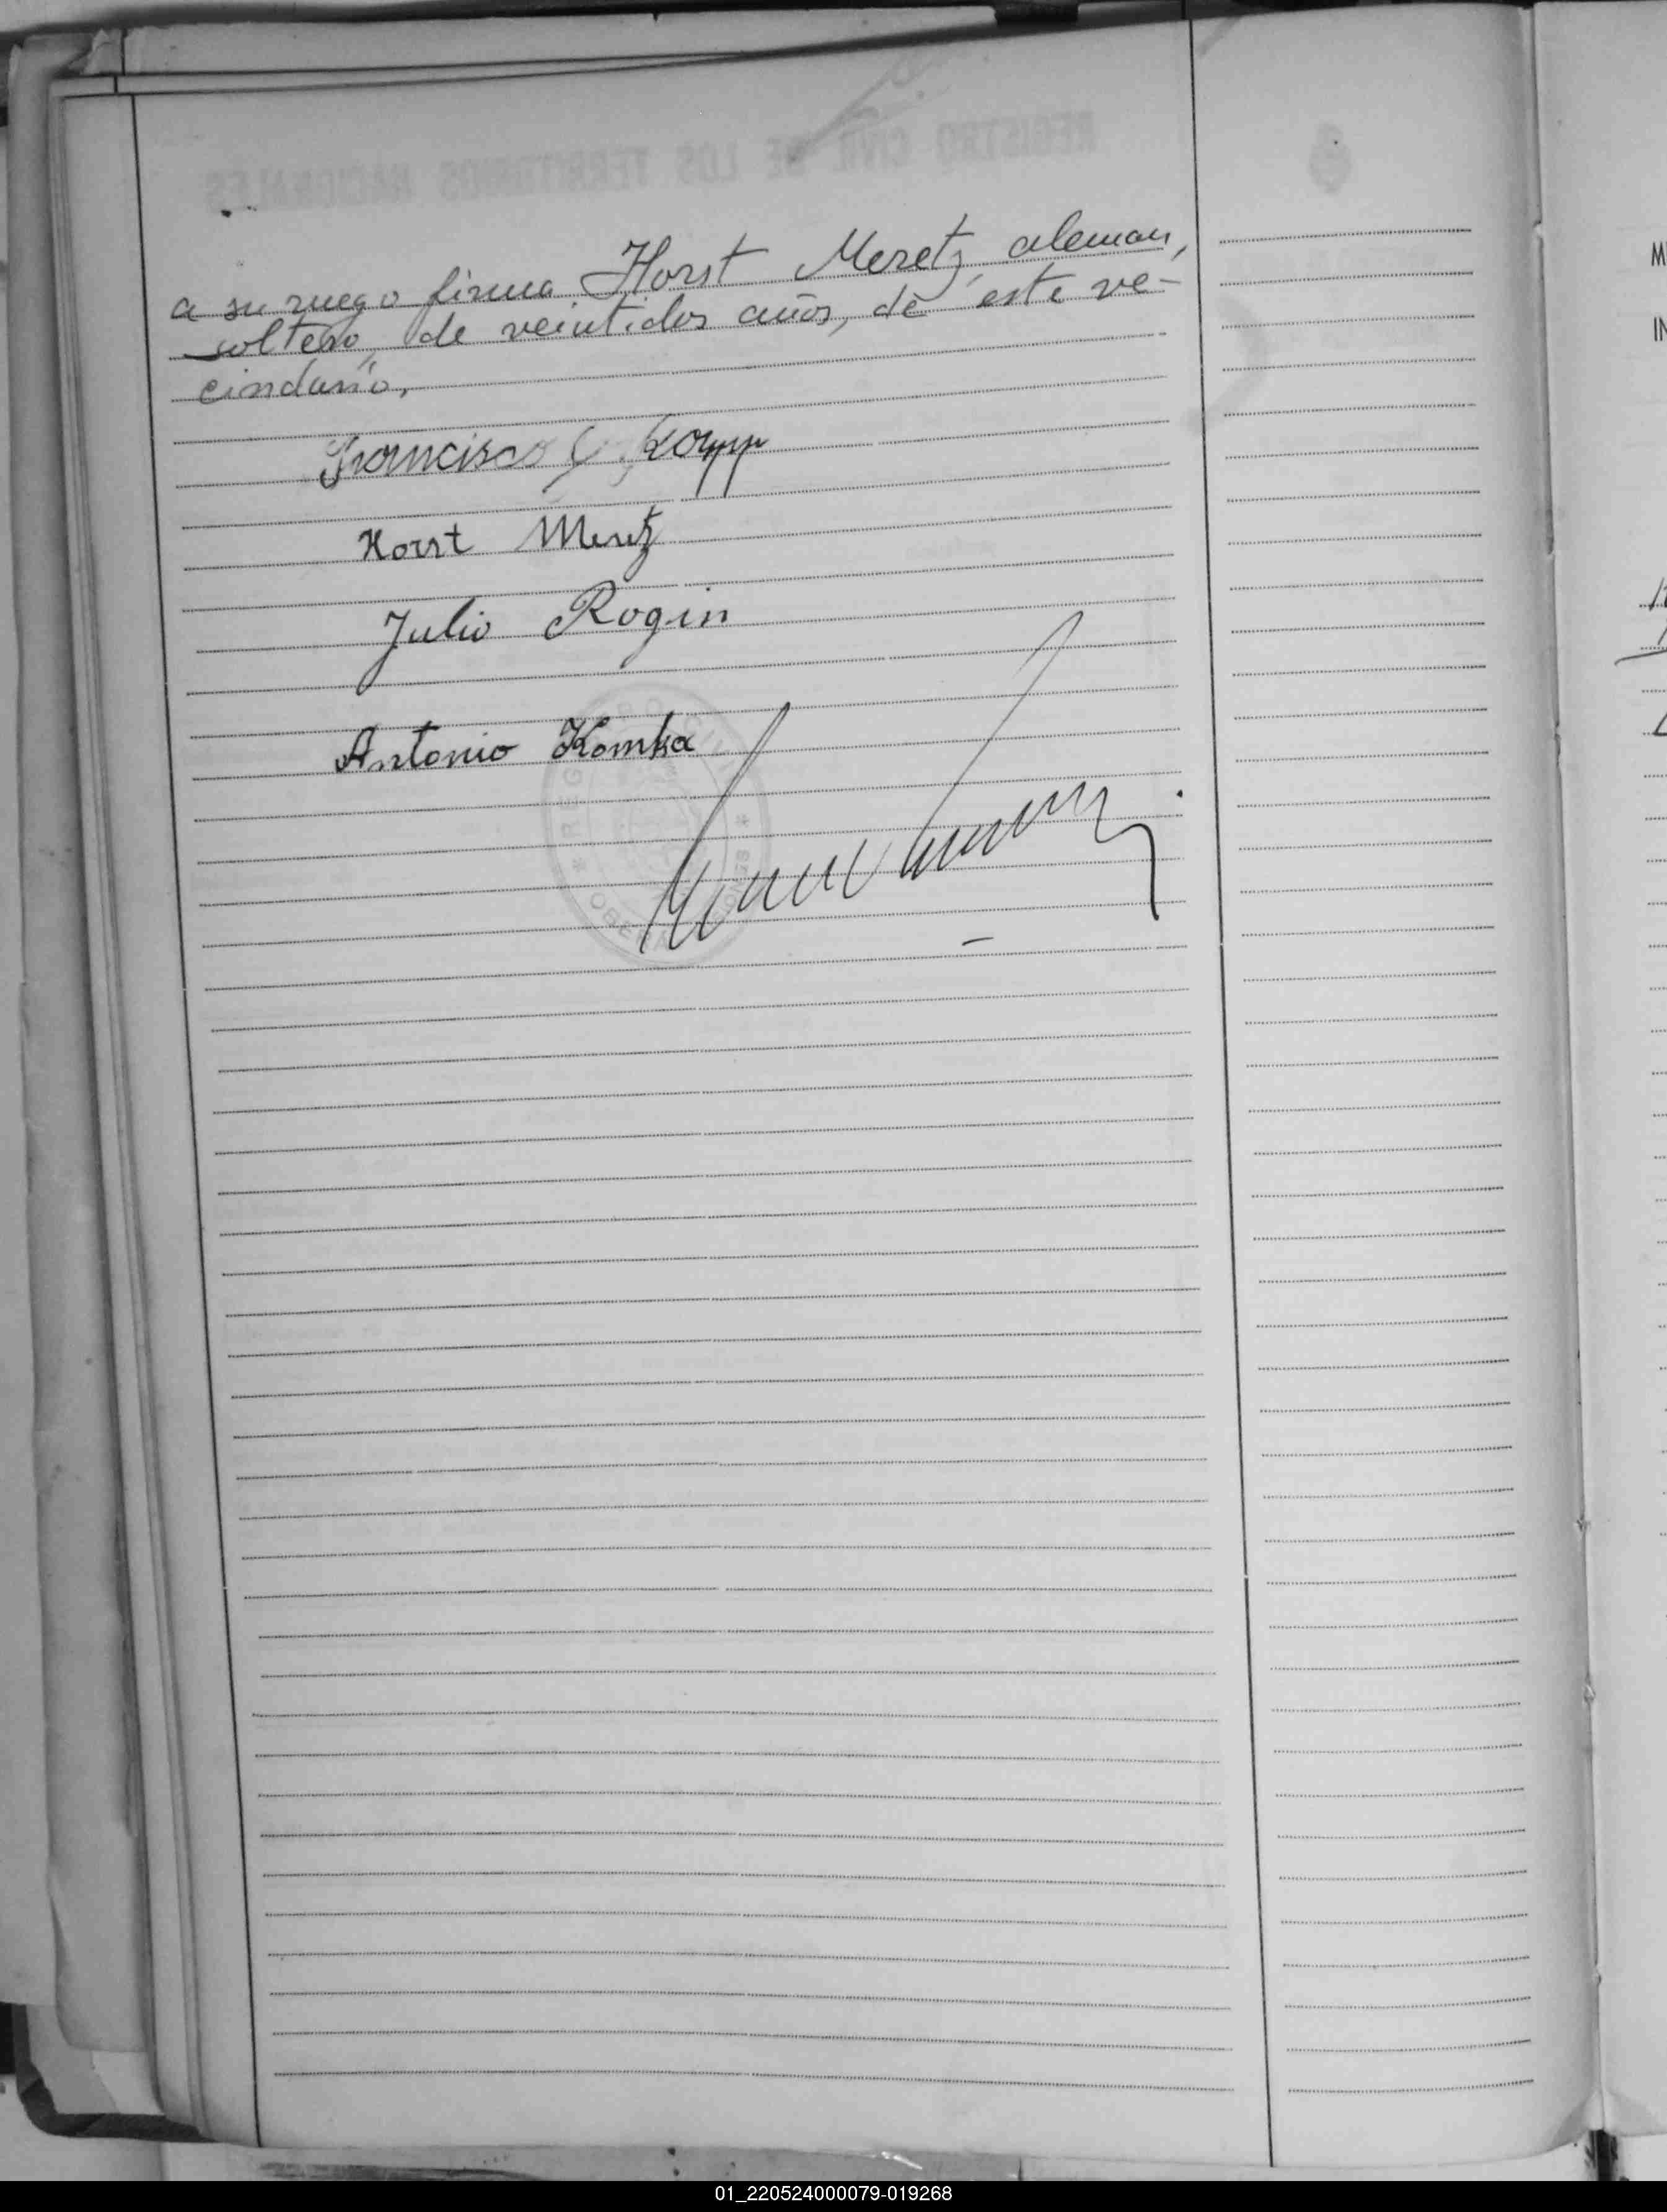 a su ruego firma Horst Meretz, aleman,
soltero, de veintidos años, de este ve-
cindario.
Francisco Kopp
Horst Meretz
Julio Rogin
Antonio Komka
OBERA
M
IN
01_220524000079-019268